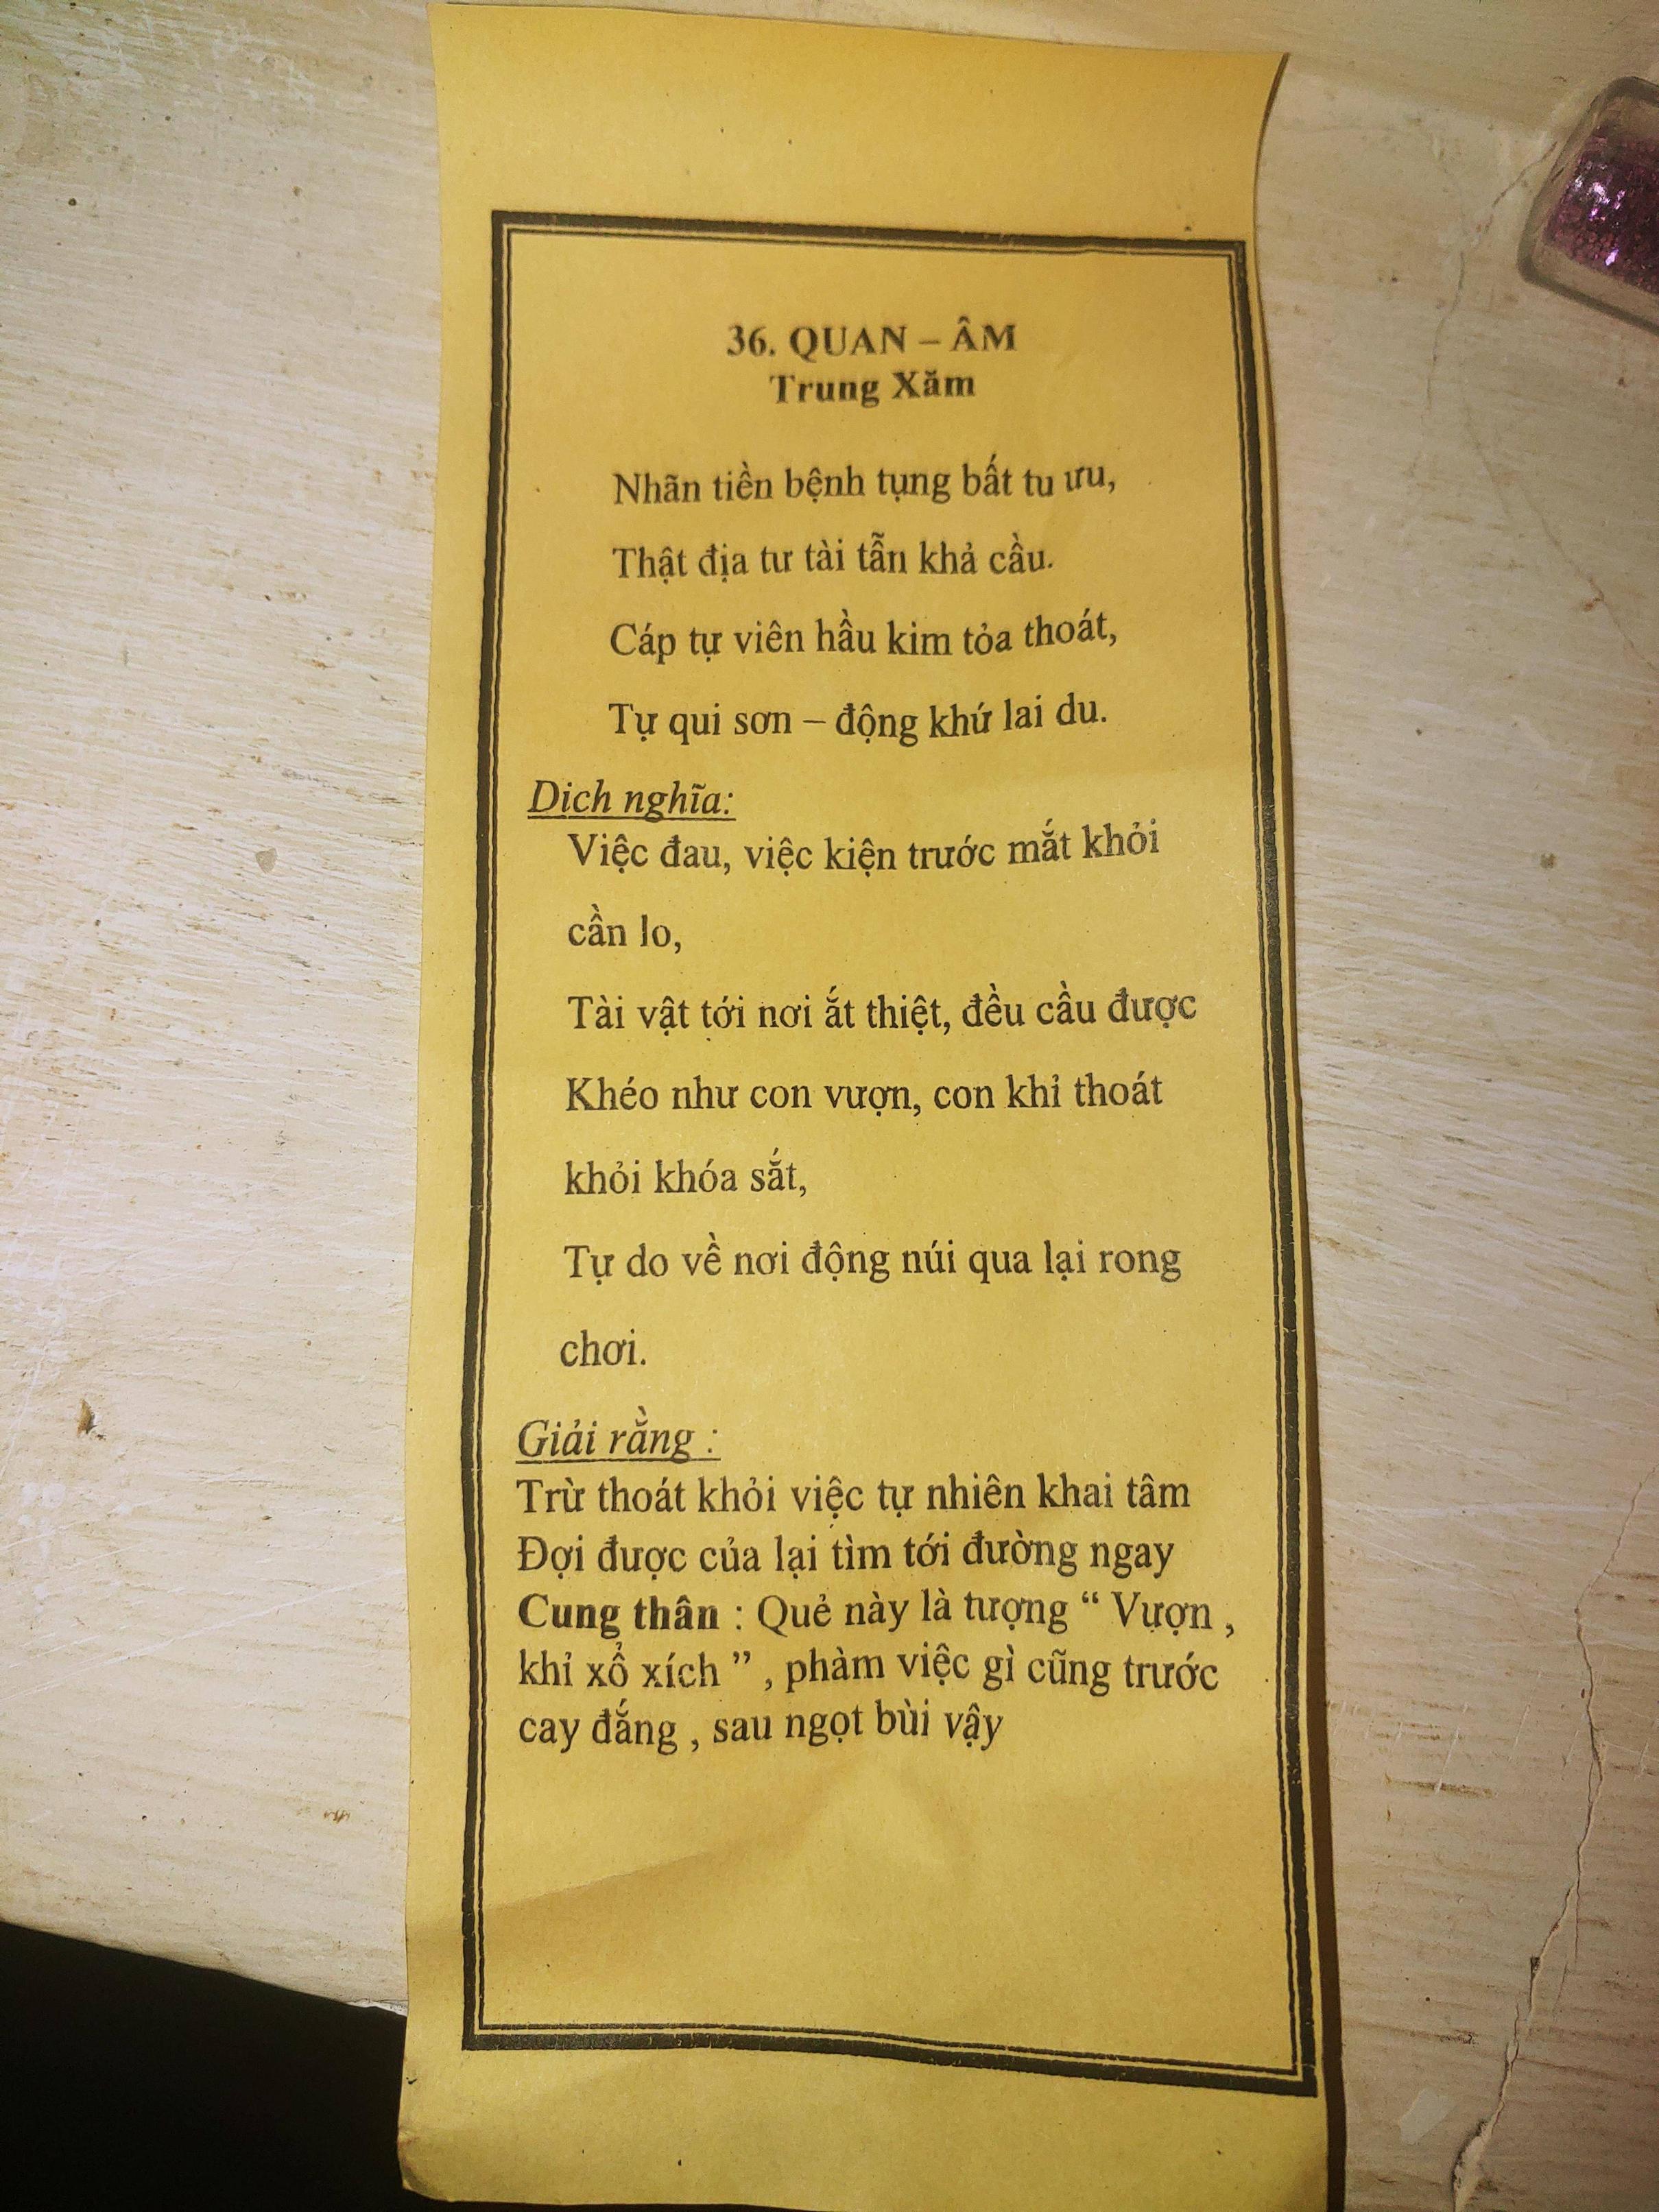 36. QUAN – ÂM
Trung Xăm
Nhãn tiền bệnh tụng bất tu ưu,
Thật địa tư tài tẫn khả cầu.
Cáp tự viên hầu kim tỏa thoát,
Tự qui sơn – động khứ lai du.
Dịch nghĩa:
Việc đau, việc kiện trước mắt khỏi
cần lo,
Tài vật tới nơi ắt thiệt, đều cầu được
Khéo như con vượn, con khỉ thoát
khỏi khóa sắt,
Tự do về nơi động núi qua lại rong
chơi.
Giải rằng :
Trừ thoát khỏi việc tự nhiên khai tâm
Đợi được của lại tìm tới đường ngay
Cung thân : Quẻ này là tượng “ Vượn ,
khỉ xổ xích ” , phàm việc gì cũng trước
cay đắng , sau ngọt bùi vậy